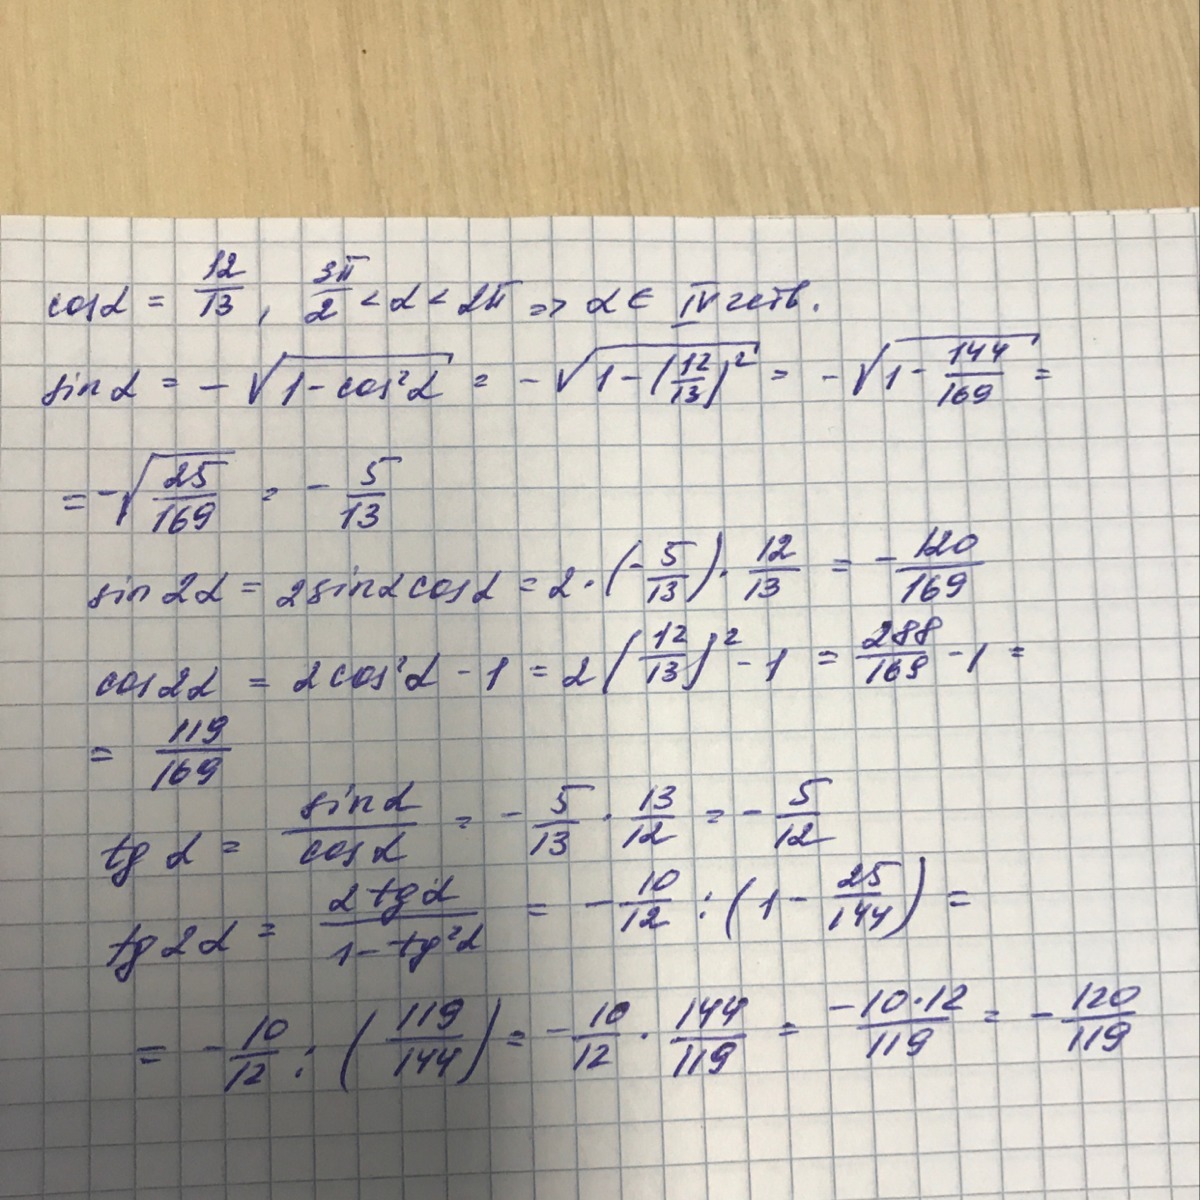 cos α = 12/13, 3π/2 < α < 2π => α ∈ IV четв.
sin α = -√(1 - cos²α) = -√(1 - (12/13)²) = -√(1 - 144/169) =
= -√(25/169) = - 5/13
sin 2α = 2 sin α cos α = 2 · (- 5/13) · 12/13 = - 120/169
cos 2α = 2 cos²α - 1 = 2 (12/13)² - 1 = 288/169 - 1 =
= 119/169
tg α = sin α/cos α = - 5/13 · 13/12 = - 5/12
tg 2α = 2 tg α/(1 - tg²α) = - 10/12 : (1 - 25/144) =
= - 10/12 : (119/144) = - 10/12 · 144/119 = -10·12/119 = - 120/119